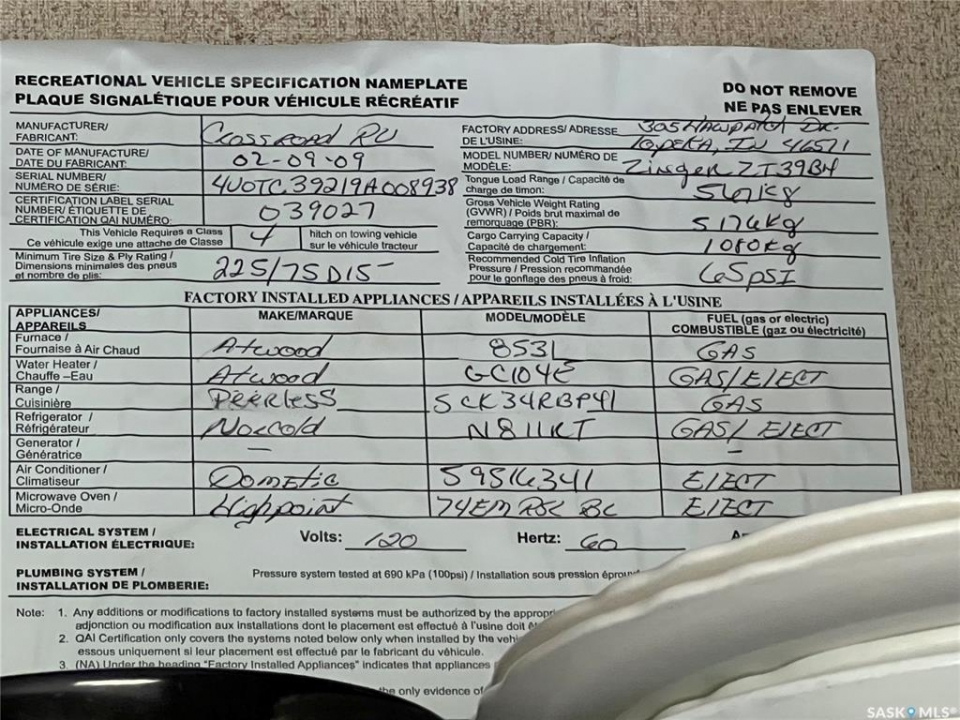 RECREATIONAL VEHICLE SPECIFICATION NAMEPLATE
PLAQUE SIGNALÉTIQUE POUR VÉHICULE RÉCRÉATIF
DO NOT REMOVE
NE PAS ENLEVER
MANUFACTURER/
FABRICANT:
Crossroad RV
DATE OF MANUFACTURE/
DATE DU FABRICANT:
02-09-09
SERIAL NUMBER/
NUMÉRO DE SÉRIE:
4V0TC39219A008938
CERTIFICATION LABEL SERIAL
NUMBER/ ÉTIQUETTE DE
CERTIFICATION QAI NUMÉRO:
039027
This Vehicle Requires a Class
Ce véhicule exige une attache de Classe
4
hitch on towing vehicle
sur le véhicule tracteur
Minimum Tire Size & Ply Rating /
Dimensions minimales des pneus
et nombre de plis:
225/75D15
FACTORY ADDRESS/ ADRESSE
DE L'USINE:
305 Hawpatch Dr.
Topeka, IN 46571
MODEL NUMBER/ NUMÉRO DE
MODÈLE:
Zinger ZT39BH
Tongue Load Range / Capacité de
charge de timon:
567kg
Gross Vehicle Weight Rating
(GVWR) / Poids brut maximal de
remorquage (PBR):
5176kg
Cargo Carrying Capacity /
Capacité de chargement:
1080kg
Recommended Cold Tire Inflation
Pressure / Pression recommandée
pour le gonflage des pneus à froid:
65psi
FACTORY INSTALLED APPLIANCES / APPAREILS INSTALLÉES À L'USINE
APPLIANCES/
APPAREILS
MAKE/MARQUE
MODEL/MODÈLE
FUEL (gas or electric)
COMBUSTIBLE (gaz ou électricité)
Furnace /
Fournaise à Air Chaud
Atwood
8531
GAS
Water Heater /
Chauffe –Eau
Atwood
GC104E
GAS/ElECT
Range /
Cuisinière
PEERLESS
SCK34RBP41
GAS
Refrigerator /
Réfrigérateur
Norcold
N811RT
GAS/ ElECT
Generator /
Génératrice
—
–
Air Conditioner /
Climatiseur
Dometic
59516341
ElECT
Microwave Oven /
Micro-Onde
Highpoint
ElECT
ELECTRICAL SYSTEM /
INSTALLATION ÉLECTRIQUE:
Volts: 120
Hertz: 60
PLUMBING SYSTEM /
INSTALLATION DE PLOMBERIE:
Pressure system tested at 690 kPa (100psi) / Installation sous pression
Note: 1. Any additions or modifications to factory installed systems must be authorized by the
adjonction ou modification aux installations dont le placement est effectué à l'usine doit
2. QAI Certification only covers the systems noted below only when installed by the
essous uniquement si leur placement est effectué par le fabricant du véhicule.
3. (NA) Under the heading "Factory Installed Appliances" indicates that appliances
the only evidence of
SASKMLS®